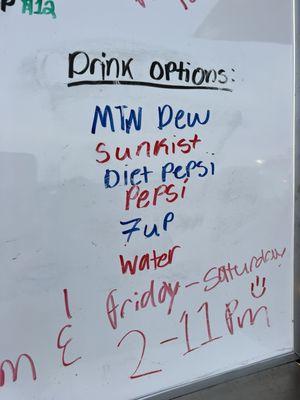 A12
Drink options:
MTN Dew
Sunkist
Diet Pepsi
Pepsi
7up
Water
Friday-Saturday
& 2-11pm
m